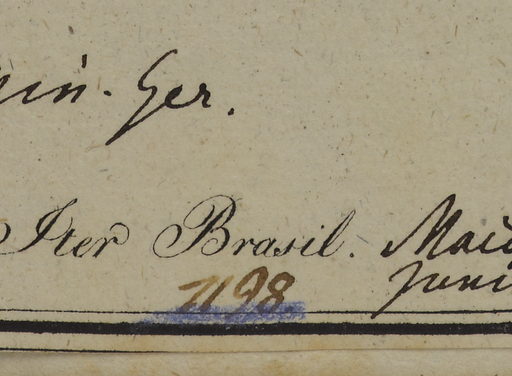 min. Ger.
Iter Brasil. Maio
Juni
1198